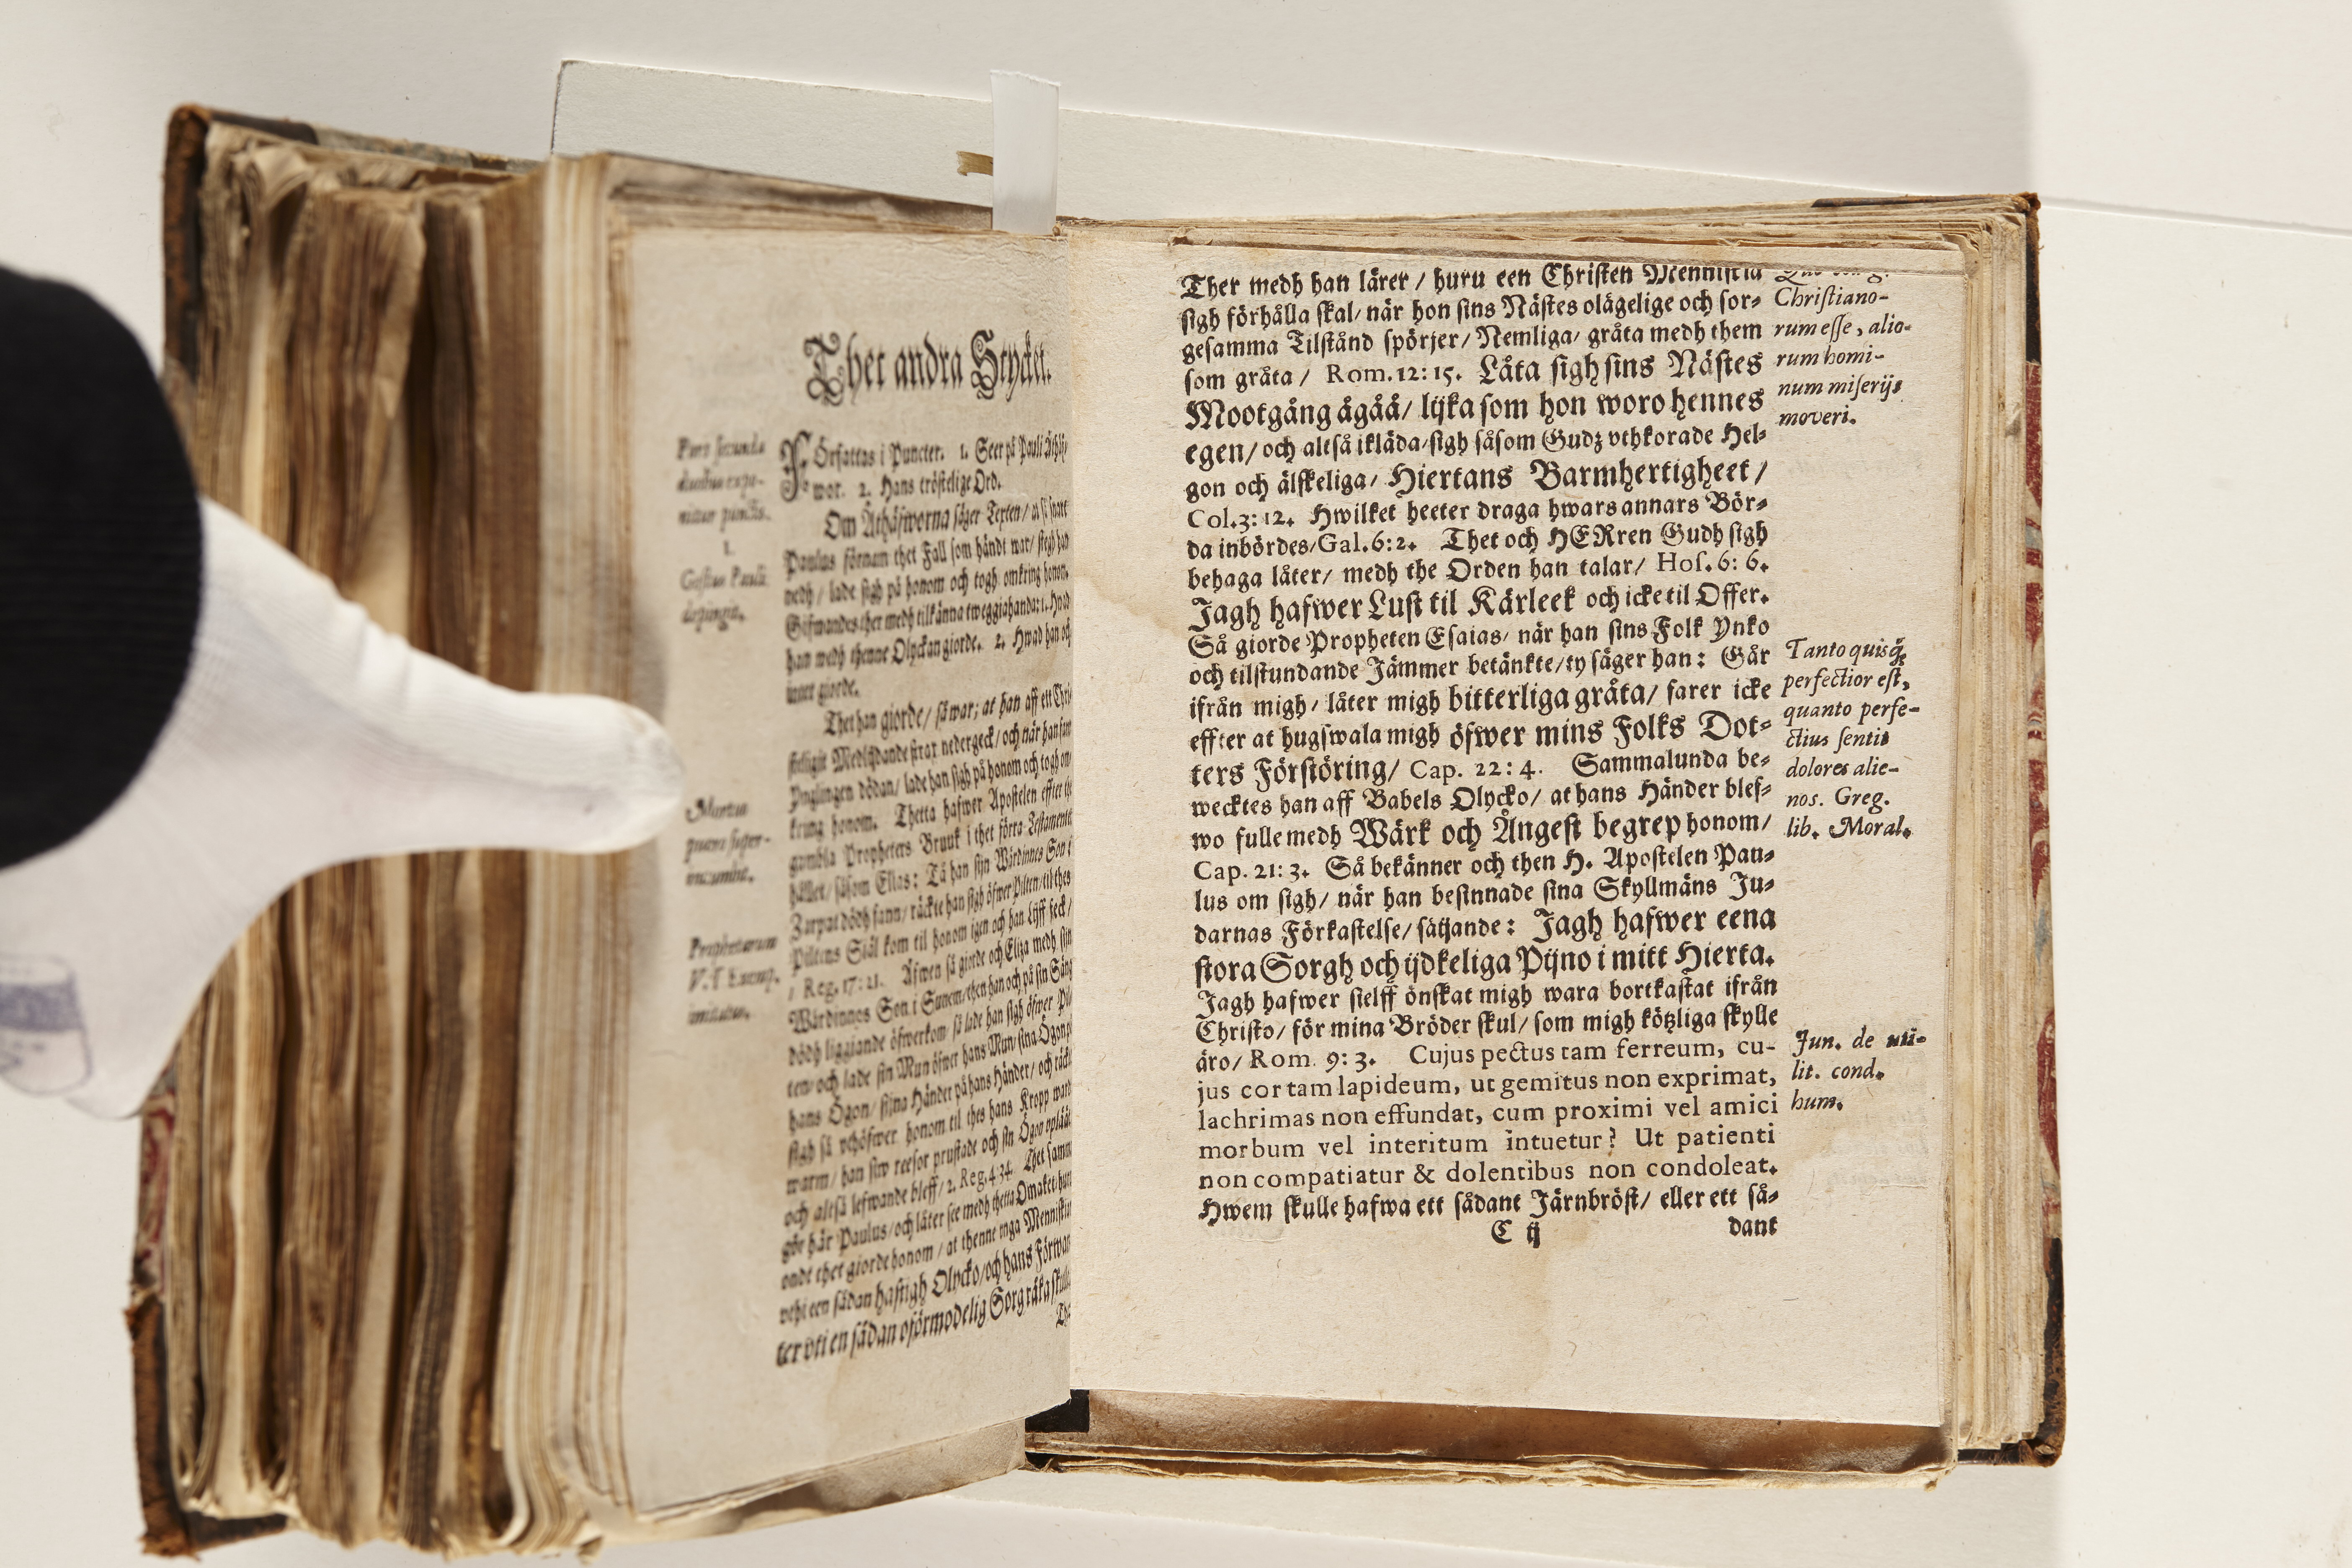 Thet andra Stycket.
Pars secunda
duobus expo-
nitur punctis.
1.
Gestus Pauli
Mortuo
puero super-
incumbit.
Prophetarum
V. T. Exemp.
imitatus.
FÖrfattas i Puncter. 1. Seer på Pauli Åthäf-
wor. 2. Hans tröstelige Ord.
Om Åthäfworna säger Texten/ at så snart
Paulus förnam thet Fall som händt war/ stegh han
nedh/ lade sigh på honom och togh omkring honom.
Gifwandes ther medh tilkänna tweggiahanda: 1. Hwad
han wedh thenne Olyckan giorde. 2. Hwad han och
intet giorde.
Thet han giorde/ så war; at han aff ett Chri-
steligit Medlijdande strax nedergeck/ och när han fann
Ynglingen dödan/ lade han sigh på honom och togh om-
kring honom. Thetta hafwer Apostelen effter the
gambla Propheters Bruuk i thet förra Testamentet
hållet/ såsom Elias: Tå han sijn Wärdinnes Son i
Zarpat dödh fann/ räckte han sigh öfwer Pilten/ til thes
Piltens Siäl kom til honom igen och han Lijff feck/
1 Reg. 17: 21. Äfwen så giorde och Elisa medh sin
Wärdinnos Son i Sunem/ then han och på sin Säng
dödh liggiande öfwerkom/ så lade han sigh öfwer Pil-
ten/ och lade sin Mun öfwer hans Mun/ sina Ögon på
hans Ögon/ sijna Händer på hans Händer/ och räckte
sigh så vthöfwer honom til thes hans Kropp wardt
warm/ han siw reesor prustade och sin Ögon vplät/
och altså lefwande bleff/ 2. Reg. 4: 34. Thet samma
gör här Paulus/ och låter see medh thetta Omaket/ huru
ondt thet giorde honom/ at thenne vnga Menniskian
vthi een sådan hastigh Olycko/ och hans Förwan-
ter vti en sådan oförmodelig Sorg råka skulle
Ther medh han lärer / huru een Christen Menniskia
sigh förhålla skal/ när hon sins Nästes olägelige och sor-
gesamma Tilstånd spörjer/ Nemliga/ gråta medh them
som gråta / Rom. 12: 15. Låta sigh sins Nästes
Mootgång ågåå/ lijka som hon woro hennes
egen/ och altså ikläda sigh såsom Gudz vthkorade Hel-
gon och älskeliga/ Hiertans Barmhertigheet/
Col. 3: 12. Hwilket heeter draga hwars annars Bör-
da inbördes/ Gal. 6: 2. Thet och HERren Gudh sigh
behaga låter/ medh the Orden han talar/ Hos. 6: 6.
Jagh hafwer Lust til Kärleek och icke til Offer.
Så giorde Propheten Esaias/ när han sins Folk Ynko
och tilstundande Jämmer betänkte/ ty säger han: Går
ifrån migh/ låter migh bitterliga gråta/ farer icke
effter at hugswala migh öfwer mins Folks Dot-
ters Förstöring/ Cap. 22: 4. Sammalunda be-
wecktes han aff Babels Olycko/ at hans Händer blef-
wo fulle medh Wärk och Ångest begrep honom/
Cap. 21: 3. Så bekänner och then H. Apostelen Pau-
lus om sigh/ när han besinnade sina Skyllmäns Ju-
darnas Förkastelse/ säijande: Jagh hafwer eena
stora Sorgh och ijdkeliga Pijno i mitt Hierta.
Jagh hafwer sielff önskat migh wara bortkastat ifrån
Christo/ för mina Bröder skul/ som migh kötzliga skylle
äro/ Rom. 9: 3. Cujus pectus tam ferreum, cu-
jus cor tam lapideum, ut gemitus non exprimat,
lachrimas non effundat, cum proximi vel amici
morbum vel interitum intuetur? Ut patienti
non compatiatur & dolentibus non condoleat.
Hwem skulle hafwa ett sådant Järnbröst/ eller ett så-
C ij
dant
Christiano-
rum esse, alio-
rum homi-
num miserijs
moveri.
Tanto quisq;
perfectior est,
quanto perfe-
ctius sentit
dolores alie-
nos. Greg.
lib. Moral.
Jun. de uti-
lit. cond.
hum.